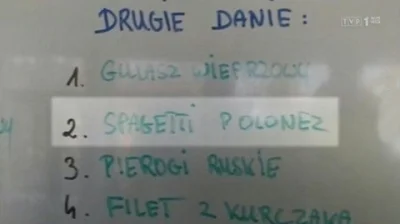 DRUGIE DANIE:
TVP1 HD
1. GULASZ WIEPRZOWY
2. SPAGETTI POLONEZ
3. PIEROGI RUSKIE
4. FILET Z KURCZAKA